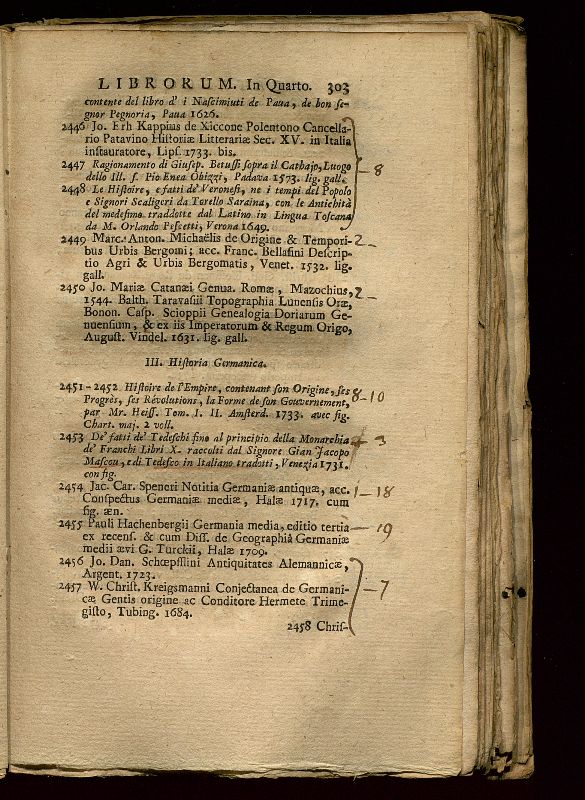 LIBRORUM. In Quarto. 303
contente del libro d' i Naſcimiuti de Paua, de bon ſe-
gnor Pegnoria, Paua 1626.
2446 Jo. Erh Kappius de Xiccone Polentono Cancella-
rio Patavino Hiſtoriæ Litterariæ Sec. XV. in Italia
inſtauratore, Lipſ. 1733. bis.
2447 Ragionamento di Giuſep. Betuſſi ſopra il Cathajo, Luogo
dello Ill. S. Pio Enea Obizzi, Padava 1573. lig. gall.
8
2448 Le Hiſtoire, e fatti de' Veroneſi, ne i tempi del Popolo
e Signori Scaligeri da Torello Saraina, con le Antichità
del medeſimo traddotte dal Latino in Lingua Toſcana
da M. Orlando Peſcetti, Verona 1649.
2449 Marc. Anton. Michaëlis de Origine & Tempori- 2-
bus Urbis Bergomi; acc. Franc. Bellafini Deſcrip-
tio Agri & Urbis Bergomatis, Venet. 1532. lig.
gall.
2450 Jo. Mariæ Catanæi Genua. Romæ, Mazochius, 2-
1544. Balth. Taravaſii Topographia Lunenſis Oræ,
Bonon. Caſp. Scioppii Genealogia Doriarum Ge-
nuenſium, & ex iis Imperatorum & Regum Origo,
Auguſt. Vindel. 1631. lig. gall.
III. Hiſtoria Germanica.
2451-2452 Hiſtoire de l'Empire, contenant ſon Origine, ſes
Progrès, ſes Révolutions, la Forme de ſon Gouvernement, 8-10
par Mr. Heiſſ. Tom. I. II. Amſterd. 1733. avec fig.
Chart. maj. 2 voll.
2453 De' fatti de' Tedeſchi fino al principio della Monarchia 4-3
de' Franchi Libri X. raccolti dal Signore Gian Jacopo
Maſcou, e di Tedeſco in Italiano tradotti, Venezia 1731.
con fig.
2454 Jac. Car. Speneri Notitia Germaniæ antiquæ, acc. 1-18
Conſpectus Germaniæ mediæ, Halæ 1717. cum
fig. æn.
2455 Pauli Hachenbergii Germania media, editio tertia - 19
ex recenſ. & cum Diſſ. de Geographiâ Germaniæ
medii ævi G. Turckii, Halæ 1709.
2456 Jo. Dan. Schœpflini Antiquitates Alemannicæ,
Argent. 1723.
2457 W. Chriſt. Kreigsmanni Conjectanea de Germani- -7
cæ Gentis origine ac Conditore Hermete Trime-
giſto, Tubing. 1684.
2458 Chriſ-